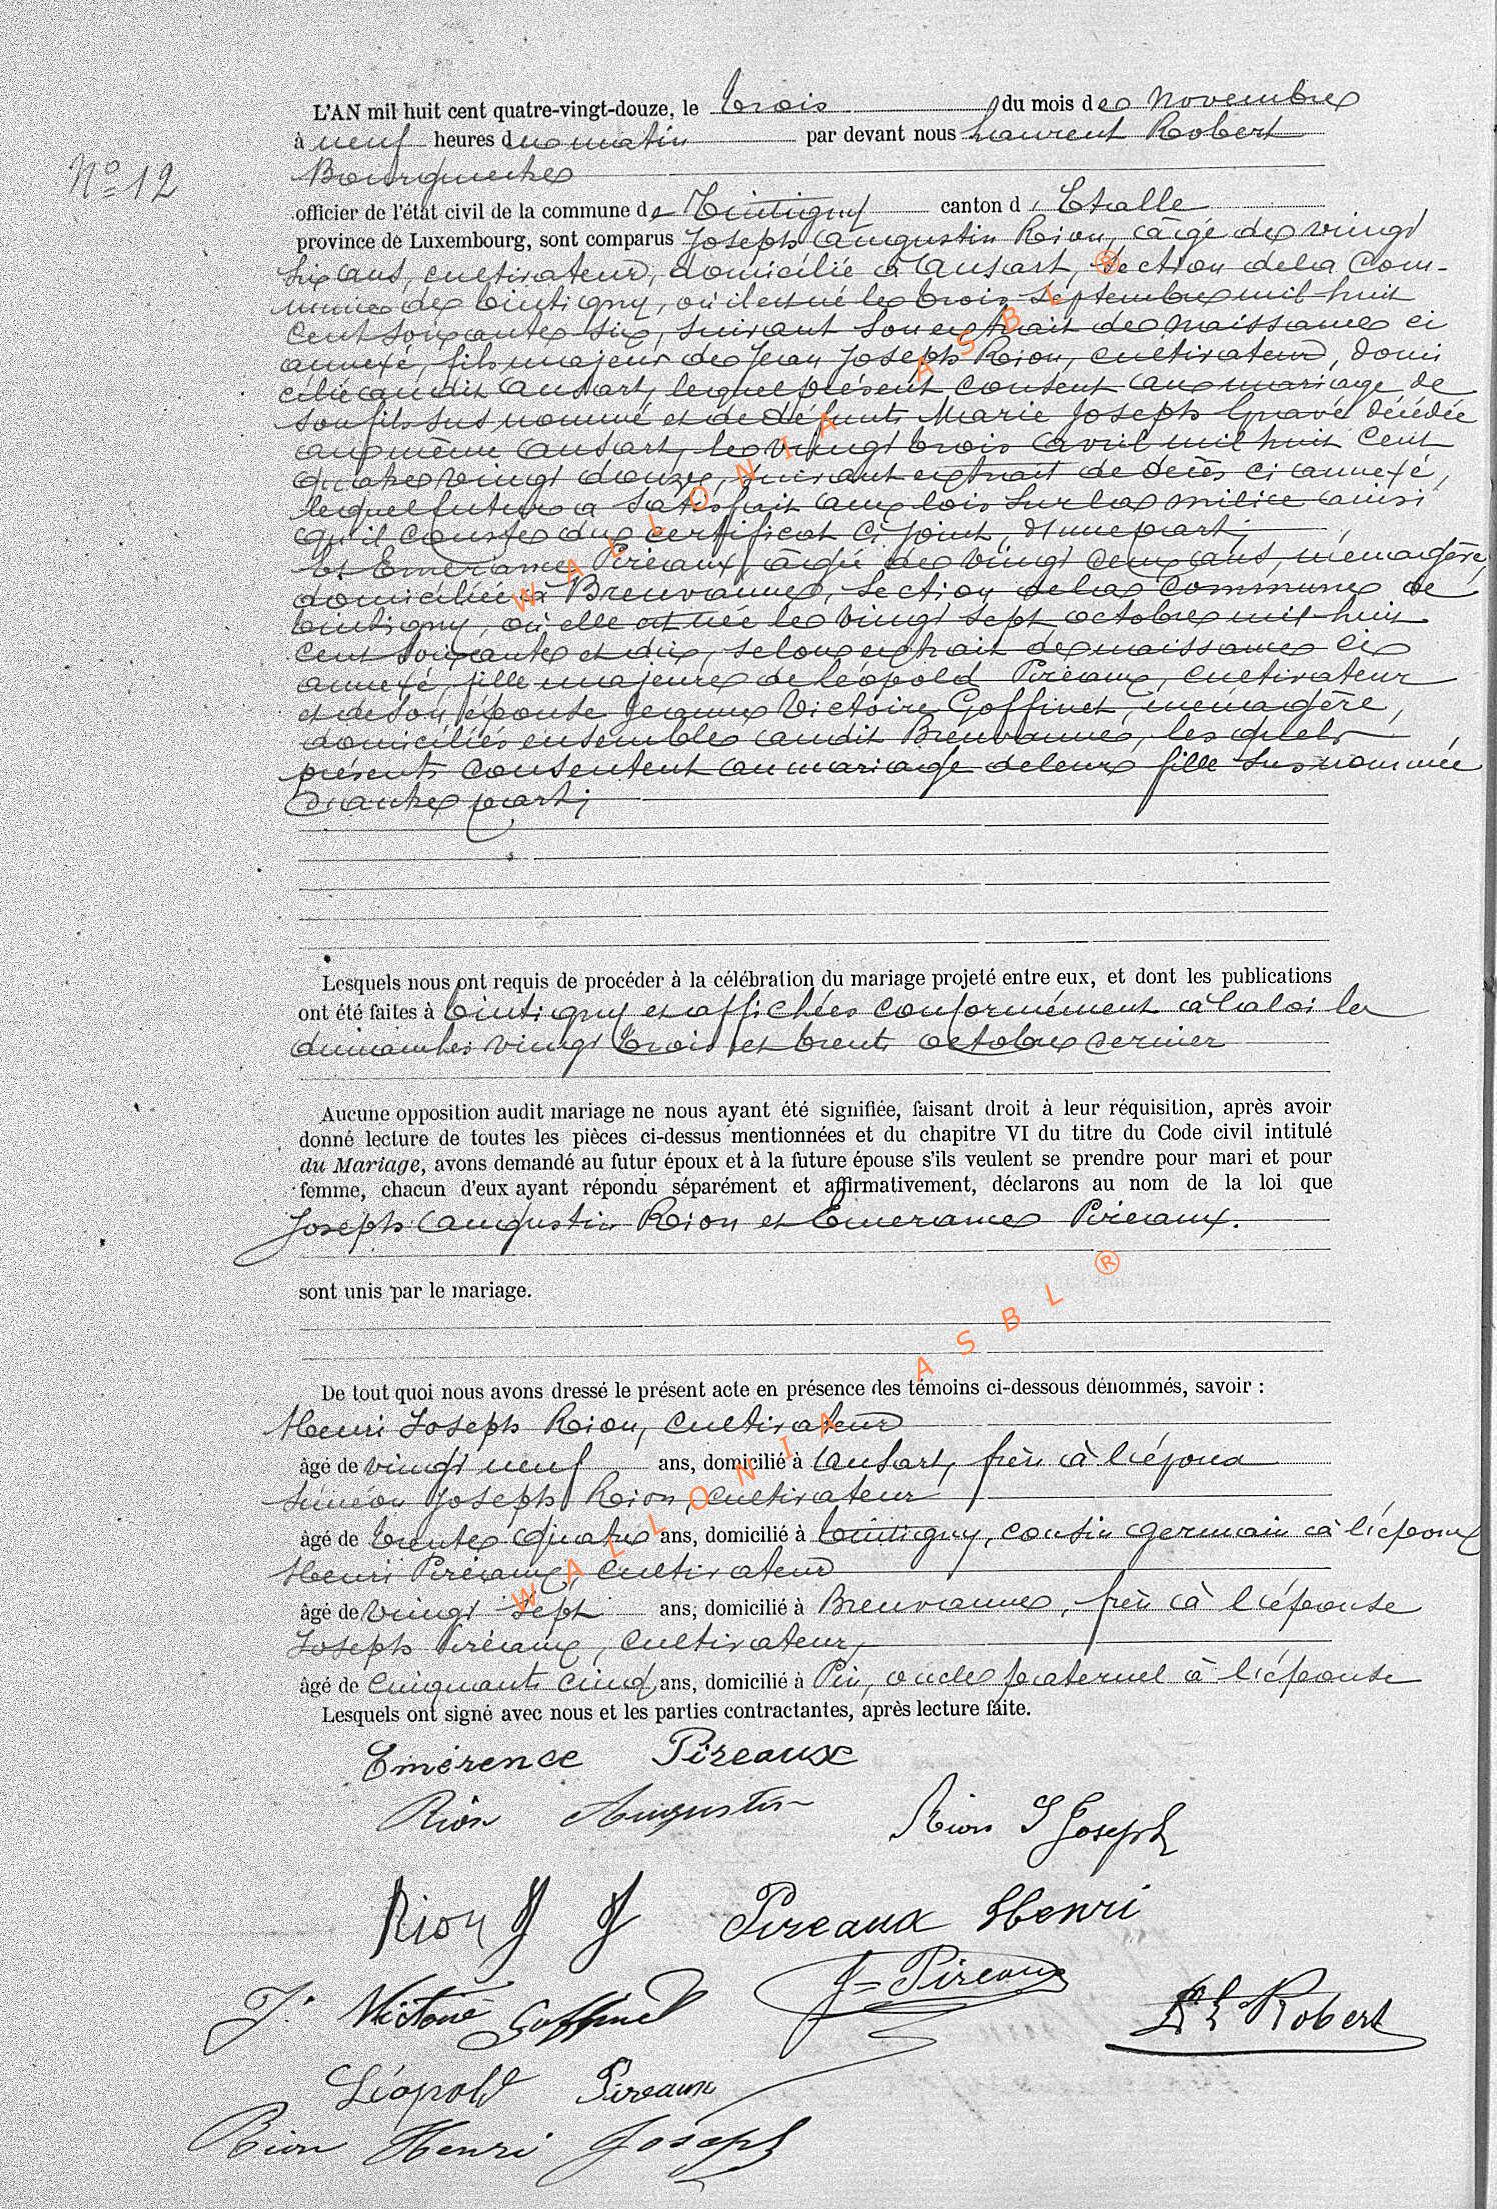 L'AN mil huit cent quatre-vingt-douze, le trois du mois de novembre
à neuf heures du matin par devant nous Laurent Robert
N° 12
Bourgmestre
officier de l'état civil de la commune de Tintigny canton d'Etalle
province de Luxembourg, sont comparus Joseph Augustin Rion, âgé de vingt
six ans, cultivateur, domicilié à Ansart, section de la Com-
mune de Tintigny, où il est né le trois septembre mil huit
cent soixante six, suivant son extrait de naissance ci
annexé, fils majeur de Jean Joseph Rion, cultivateur, domi
cilié audit Ansart, lequel présent consent au mariage de
son fils sus nommé et de défunte Marie Joseph Gravé décédée
au même Ansart, le vingt trois avril mil huit cent
quatre vingt douze, suivant extrait de décès ci annexé,
lequel futur a satisfait aux lois sur la milice ainsi
qu'il conste du certificat ci joint, d'une part;
Et Emérance Piréaux, âgée de vingt deux ans, ménagère,
domiciliée à Breuvanne, section de la commune de
Tintigny, où elle est née le vingt sept octobre mil huit
cent soixante et dix, selon extrait de naissance ci
annexé, fille majeure de Léopold Piréaux, cultivateur
et de son épouse Jeanne Victoire Goffinet, ménagère,
domiciliés ensemble audit Breuvanne, lesquels
présents consentent au mariage de leur fille sus nommée
d'autre part;
Lesquels nous ont requis de procéder à la célébration du mariage projeté entre eux, et dont les publications
ont été faites à Tintigny et affichées conformément à la loi les
dimanches vingt trois et trente octobre dernier
Aucune opposition audit mariage ne nous ayant été signifiée, faisant droit à leur réquisition, après avoir
donné lecture de toutes les pièces ci-dessus mentionnées et du chapitre VI du titre du Code civil intitulé
du Mariage, avons demandé au futur époux et à la future épouse s'ils veulent se prendre pour mari et pour
femme, chacun d'eux ayant répondu séparément et affirmativement, déclarons au nom de la loi que
Joseph Augustin Rion et Emerance Pireaux.
sont unis par le mariage.
De tout quoi nous avons dressé le présent acte en présence des témoins ci-dessous dénommés, savoir :
Henri Joseph Rion, cultivateur
âgé de vingt neuf ans, domicilié à Ansart, frère à l'époux
Siméon Joseph Rion, cultivateur
âgé de trente quatre ans, domicilié à Tintigny, cousin germain à l'époux
Henri Piréaux, cultivateur
âgé de vingt sept ans, domicilié à Breuvanne, frère à l'épouse
Joseph Piréaux, cultivateur,
âgé de cinquante cinq ans, domicilié à Pin, oncle paternel à l'épouse
Lesquels ont signé avec nous et les parties contractantes, après lecture faite.
Emérence Pireaux
Rion Augustin
Rion S Joseph
Rion J J
Pireaux Henri
J. Victoire Goffinet
J= Pireaux
L Robert
Léopold Pireaux
Rion Henri Joseph
WALLONIA ASBL ®
WALLONIA ASBL ®